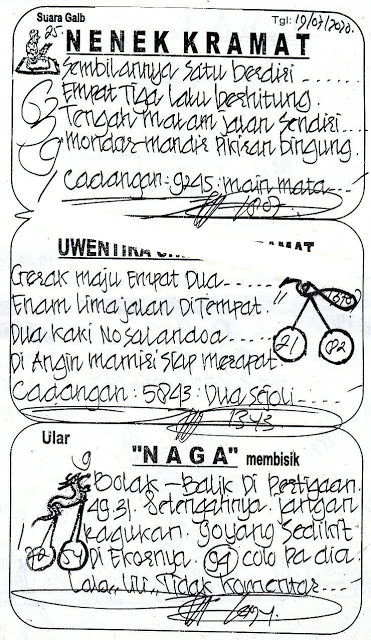 Suara Gaib
Tgl: 19/07/2020.
25.
NENEK KRAMAT
Sembilannya satu berdiri ......
Empat Tiga lalu berhitung.
Tengah malam jalan sendiri....
Mondar-mandir pikiran bingung.
639
Cadangan: 9245: main mata....
UWENTIRA KRAMAT
Gerak maju Empat Dua.....
Enam Lima jalan DiTempat.
Dua kaki No salandoa.....
Di Angin mamiri Siap merapat.
21 82
Cadangan: 5843: Dua sejoli.....
1343
Ular
"NAGA" membisik
Bolak-Balik Di Pertigaan.
49.31. Setengahnya jangan
ragukan. Goyang Sedikit
Di Ekornya. 94 colo pa dia
Lala,, Uli,, Tidak Komentar....